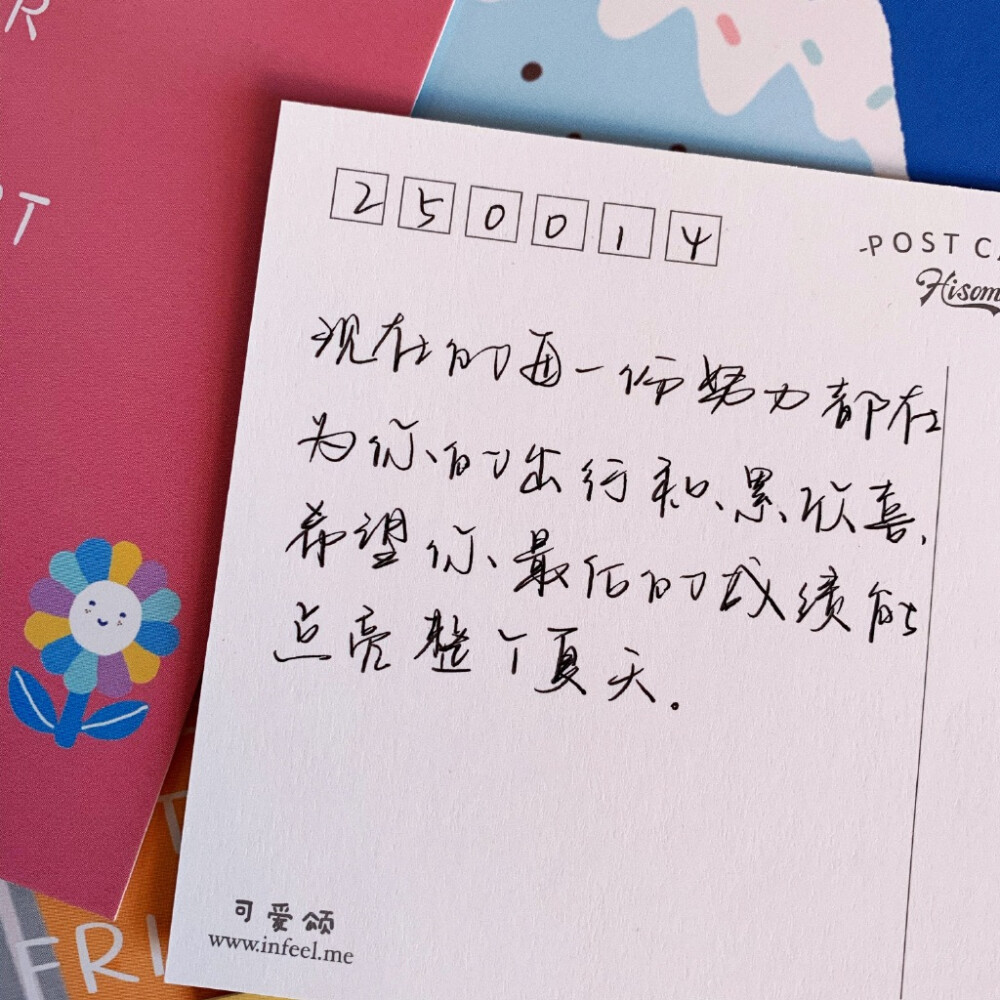 R
RT
250014
POST CA
Hisom
现在的每一份努力都在
为你的出行积累欣喜,
希望你最后的成绩能
点亮整个夏天。
可爱颂
www.infeel.me
FRI